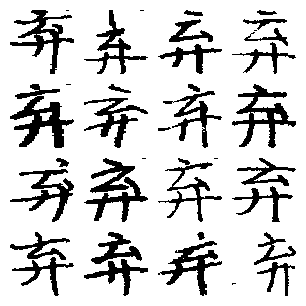 弃弃弃弃
弃弃弃弃
弃弃弃弃
弃弃弃弃